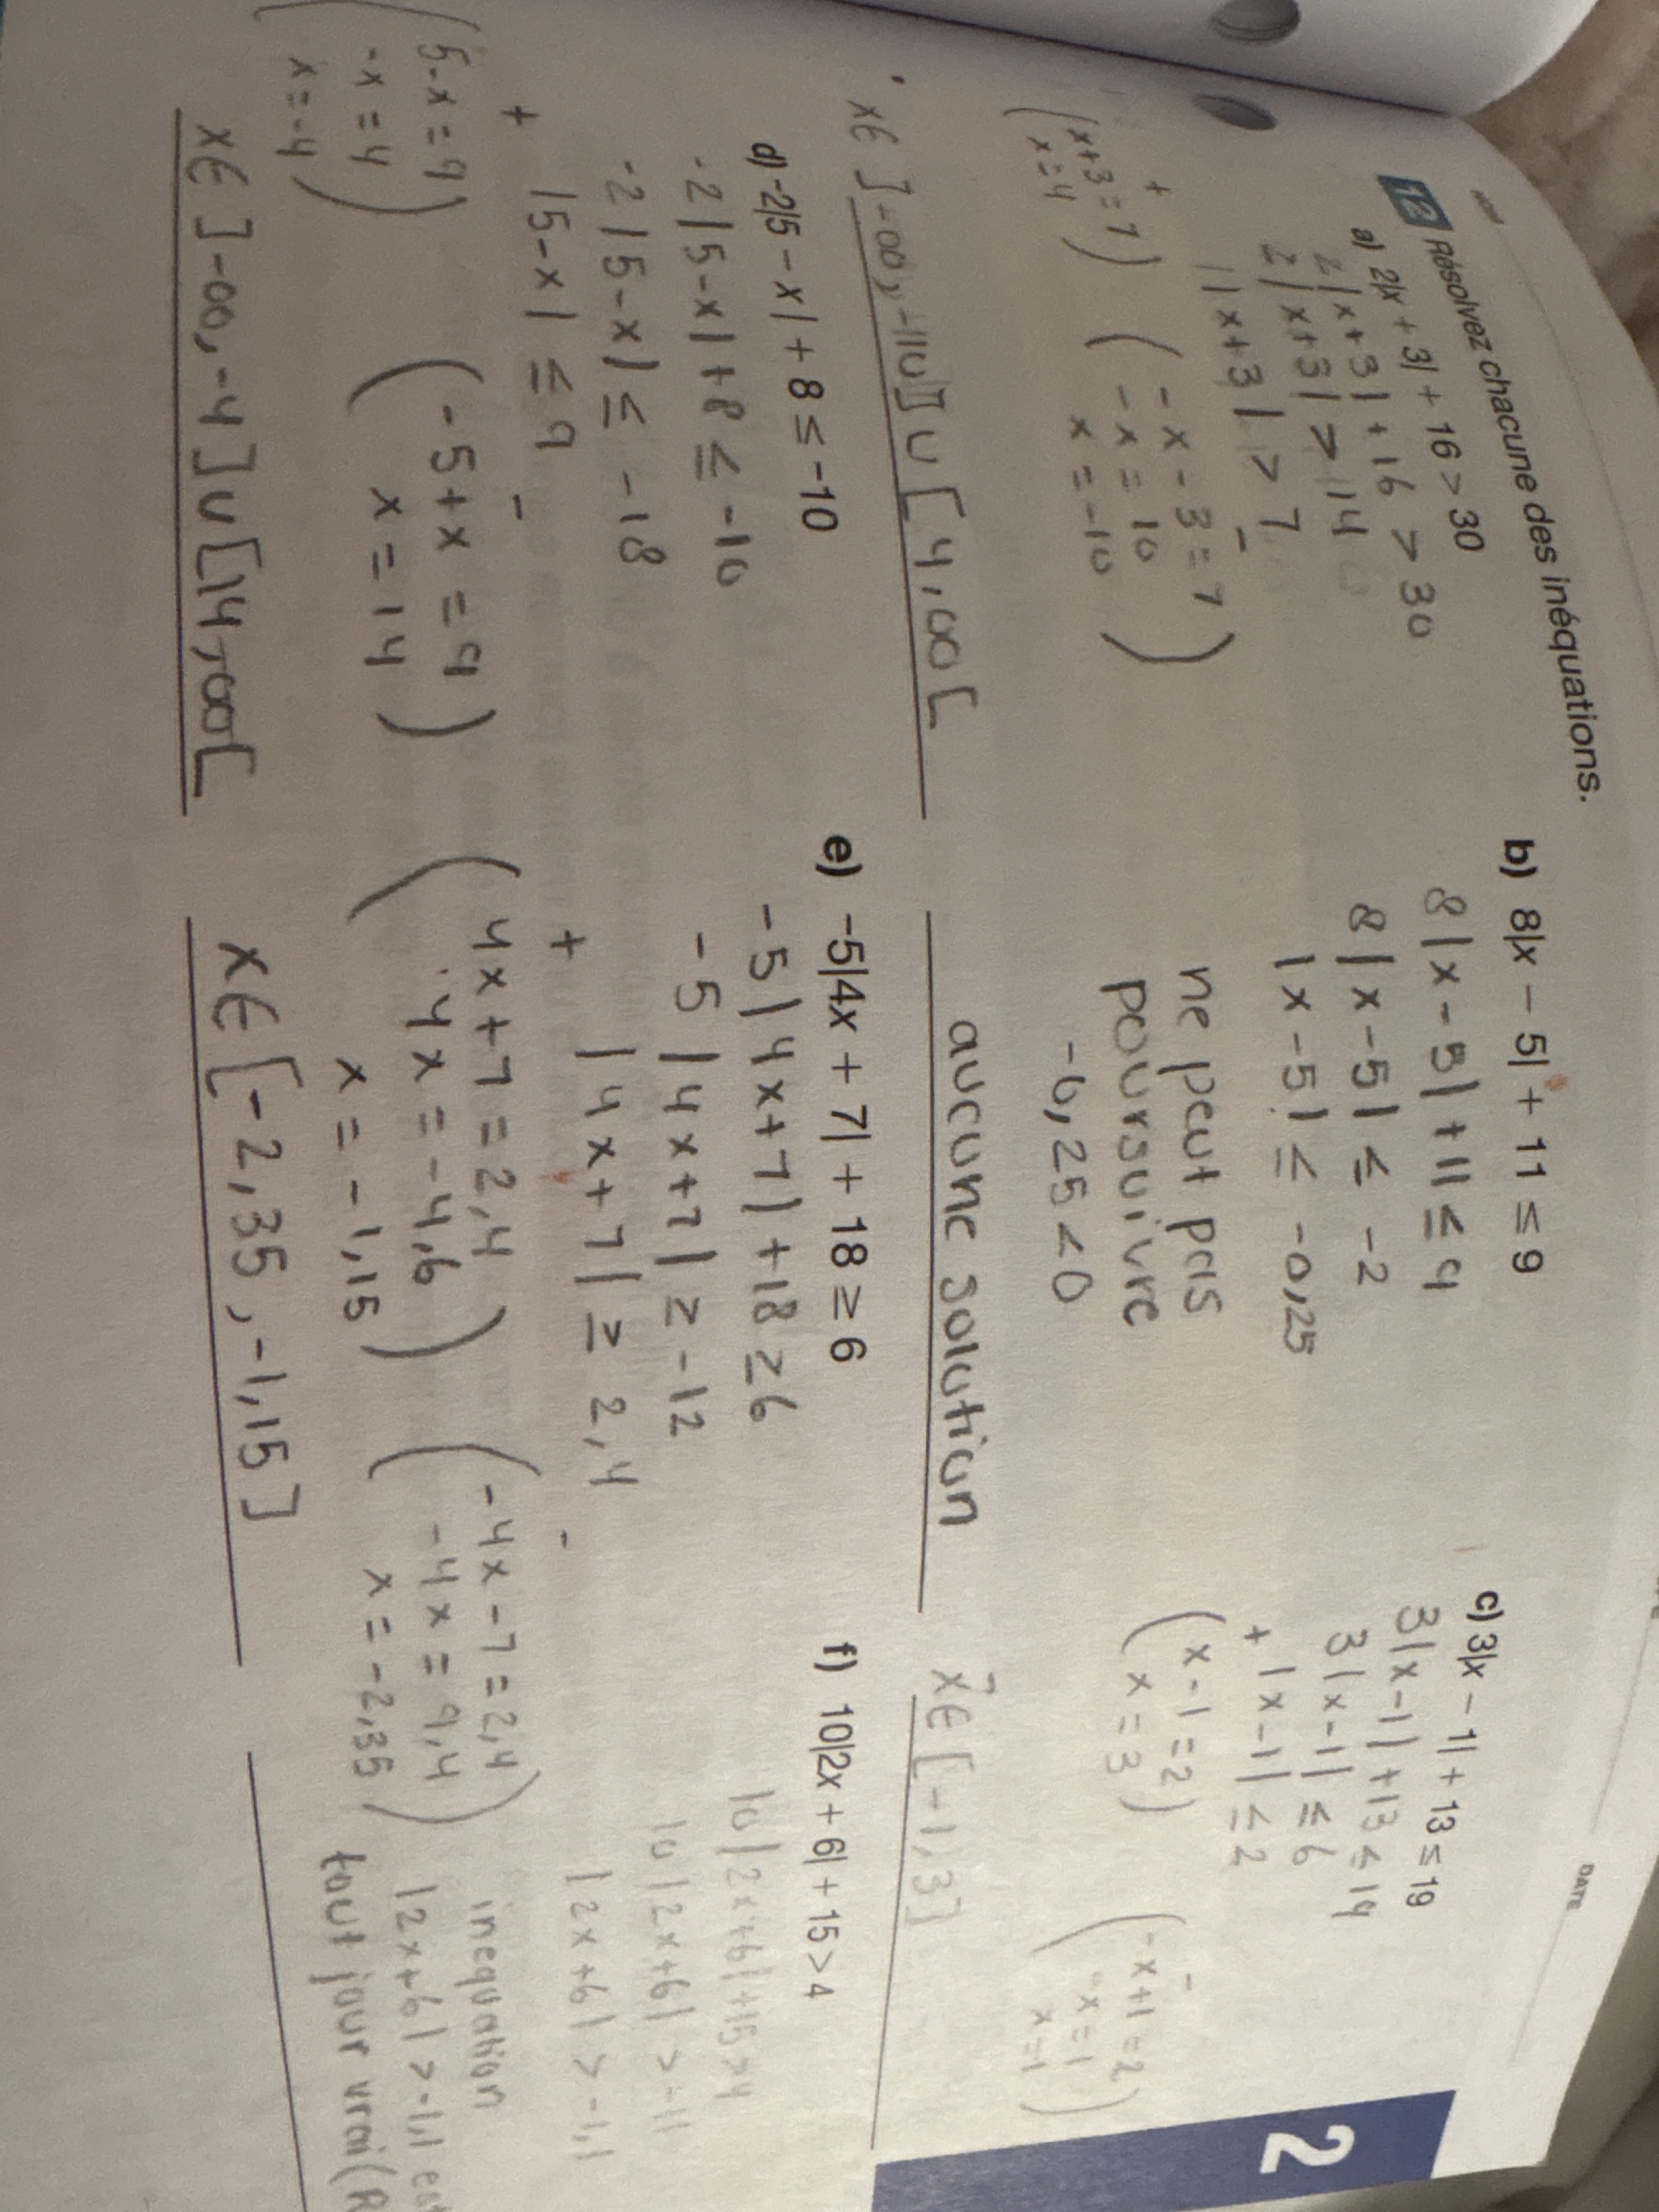 NOM
DATE
2
12 Résolvez chacune des inéquations.
a) 2|x + 3| + 16 > 30
2|x+3| + 16 > 30
2|x+3| > 14
|x+3| > 7
+
-
(x+3=7
x=4)
(-x-3=7
-x=10
x=-10)
x∈ ]-∞, -10] ∪ [4, ∞[
b) 8|x − 5| + 11 ≤ 9
8|x-5|+11 ≤ 9
8|x-5| ≤ -2
|x-5| ≤ -0,25
ne peut pas
poursuivre
-0,25<0
aucune solution
c) 3|x − 1| + 13 ≤ 19
3|x-1|+13 ≤ 19
3|x-1| ≤ 6
+ |x-1| ≤ 2
-
(x-1=2
x=3)
(-x+1=2
-x=1
x=-1)
x∈[-1,3]
d) -2|5 − x| + 8 ≤ -10
-2|5-x|+8 ≤ -10
-2|5-x| ≤ -18
|5-x| ≤ 9
+
-
(5-x=9
-x=4
x=-4)
(-5+x=9
x=14)
x∈ ]-∞,-4] ∪ [14,∞[
e) -5|4x + 7| + 18 ≥ 6
-5|4x+7|+18 ≥ 6
-5|4x+7| ≥ -12
|4x+7| ≥ 2,4
+
-
(4x+7=2,4
4x=-4,6
x=-1,15)
(-4x-7=2,4
-4x=9,4
x=-2,35)
x∈[-2,35,-1,15]
f) 10|2x + 6| + 15 > 4
10|2x+6|+15>4
10|2x+6| > -11
|2x+6| > -1,1
inequation
|2x+6| > -1,1 est
tout jour vrai (R